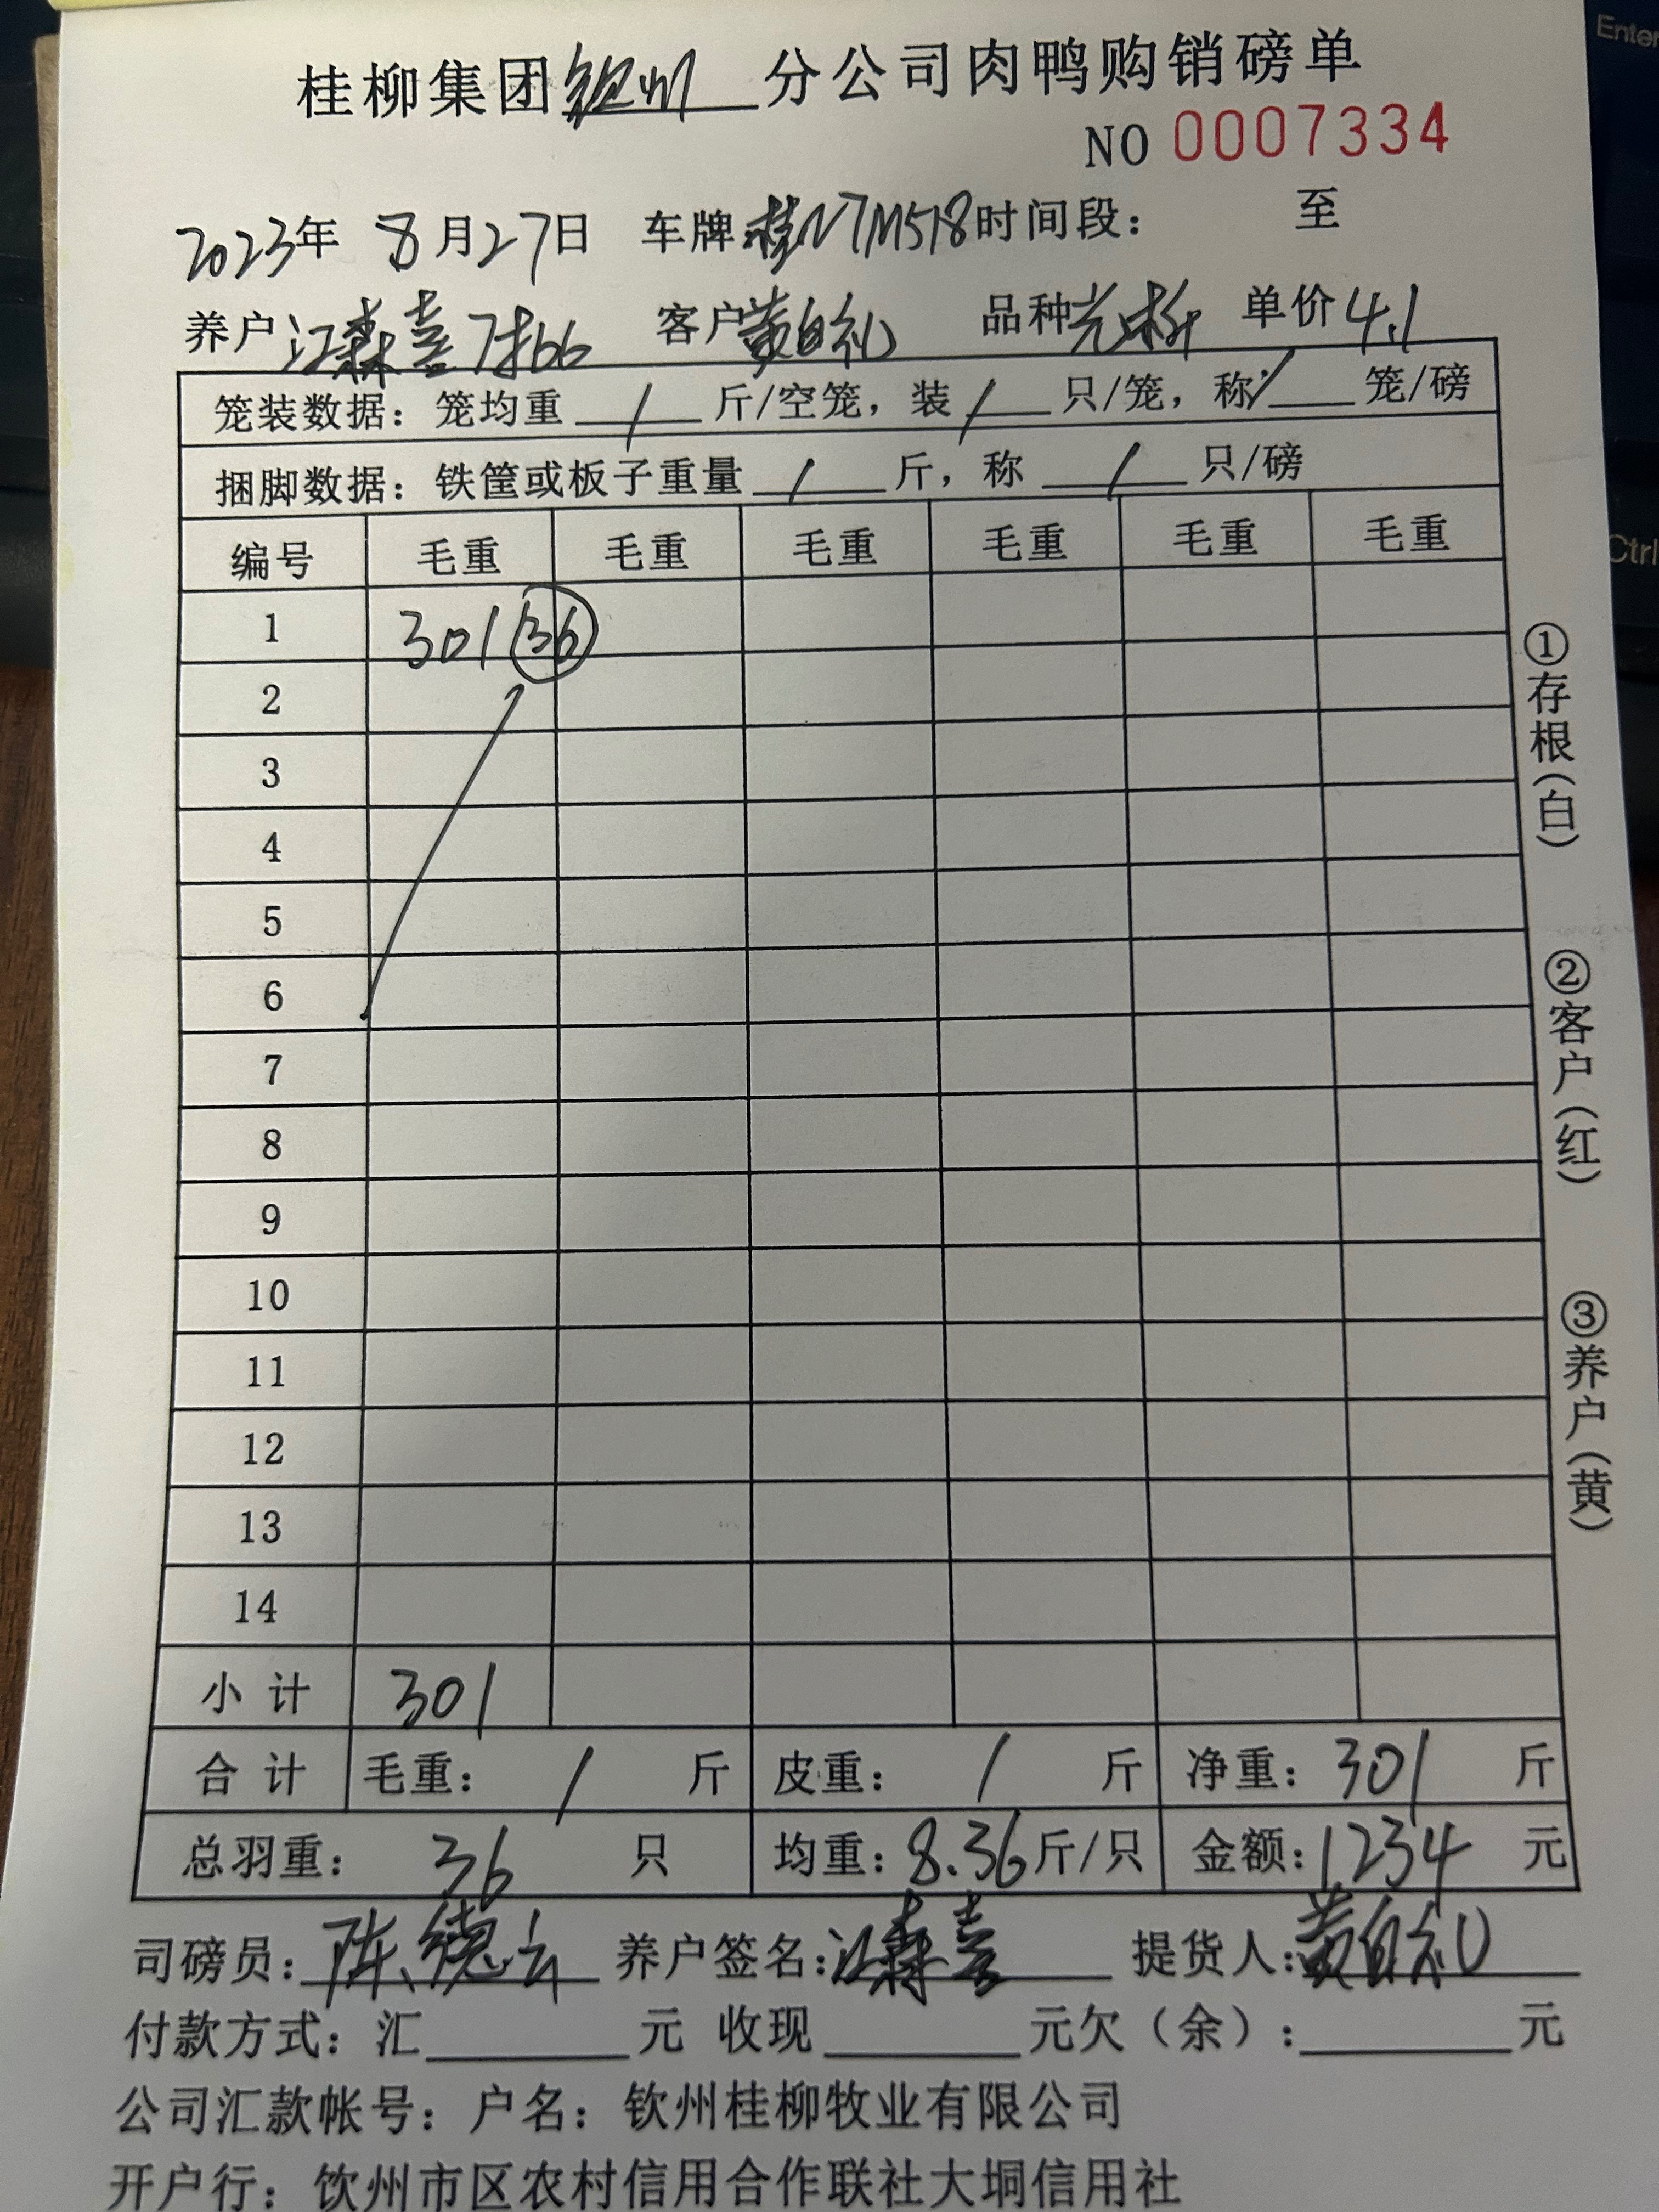 Enter
桂柳集团钦州分公司肉鸭购销磅单
NO 0007334
2023年 8月27日 车牌桂N7M518时间段： 至
养户江森喜 客户黄自礼 品种 单价4.1
笼装数据：笼均重 / 斤/空笼，装 / 只/笼，称 / 笼/磅
捆脚数据：铁筐或板子重量 / 斤，称 / 只/磅
Ctrl
编号 毛重 毛重 毛重 毛重 毛重 毛重
1 301 36
2
3
4
5
6
7
8
9
10
11
12
13
14
小计 301
合计 毛重： / 斤 皮重： / 斤 净重：301 斤
总羽重： 36 只 均重：8.36斤/只 金额：1234 元
司磅员：陈德云 养户签名：江森喜 提货人：黄自礼
付款方式：汇 元 收现 元欠（余）： 元
公司汇款帐号：户名：钦州桂柳牧业有限公司
开户行：钦州市区农村信用合作联社大垌信用社
①存根（白）
②客户（红）
③养户（黄）